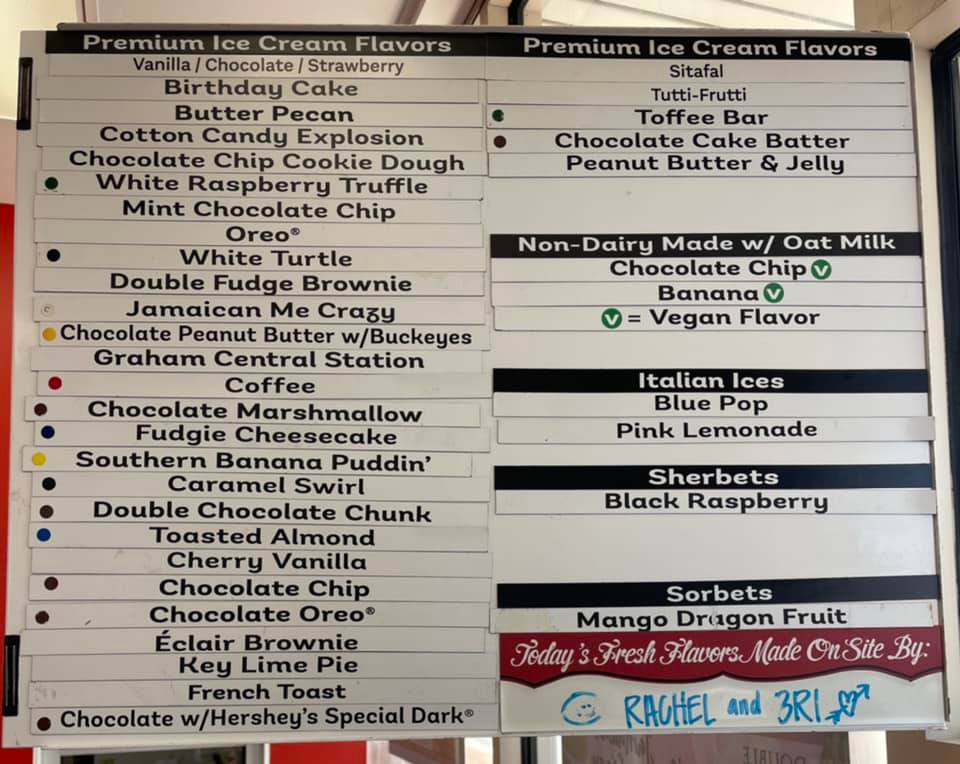 Premium Ice Cream Flavors
Vanilla / Chocolate / Strawberry
Birthday Cake
Butter Pecan
Cotton Candy Explosion
Chocolate Chip Cookie Dough
White Raspberry Truffle
Mint Chocolate Chip
Oreo®
White Turtle
Double Fudge Brownie
Jamaican Me Crazy
Chocolate Peanut Butter w/Buckeyes
Graham Central Station
Coffee
Chocolate Marshmallow
Fudgie Cheesecake
Southern Banana Puddin’
Caramel Swirl
Double Chocolate Chunk
Toasted Almond
Cherry Vanilla
Chocolate Chip
Chocolate Oreo®
Éclair Brownie
Key Lime Pie
French Toast
Chocolate w/Hershey’s Special Dark®
Premium Ice Cream Flavors
Sitafal
Tutti-Frutti
Toffee Bar
Chocolate Cake Batter
Peanut Butter & Jelly
Non-Dairy Made w/ Oat Milk
Chocolate Chip V
Banana V
V = Vegan Flavor
Italian Ices
Blue Pop
Pink Lemonade
Sherbets
Black Raspberry
Sorbets
Mango Dragon Fruit
Today’s Fresh Flavors Made On Site By:
RACHEL and 3RI
DOUBLE